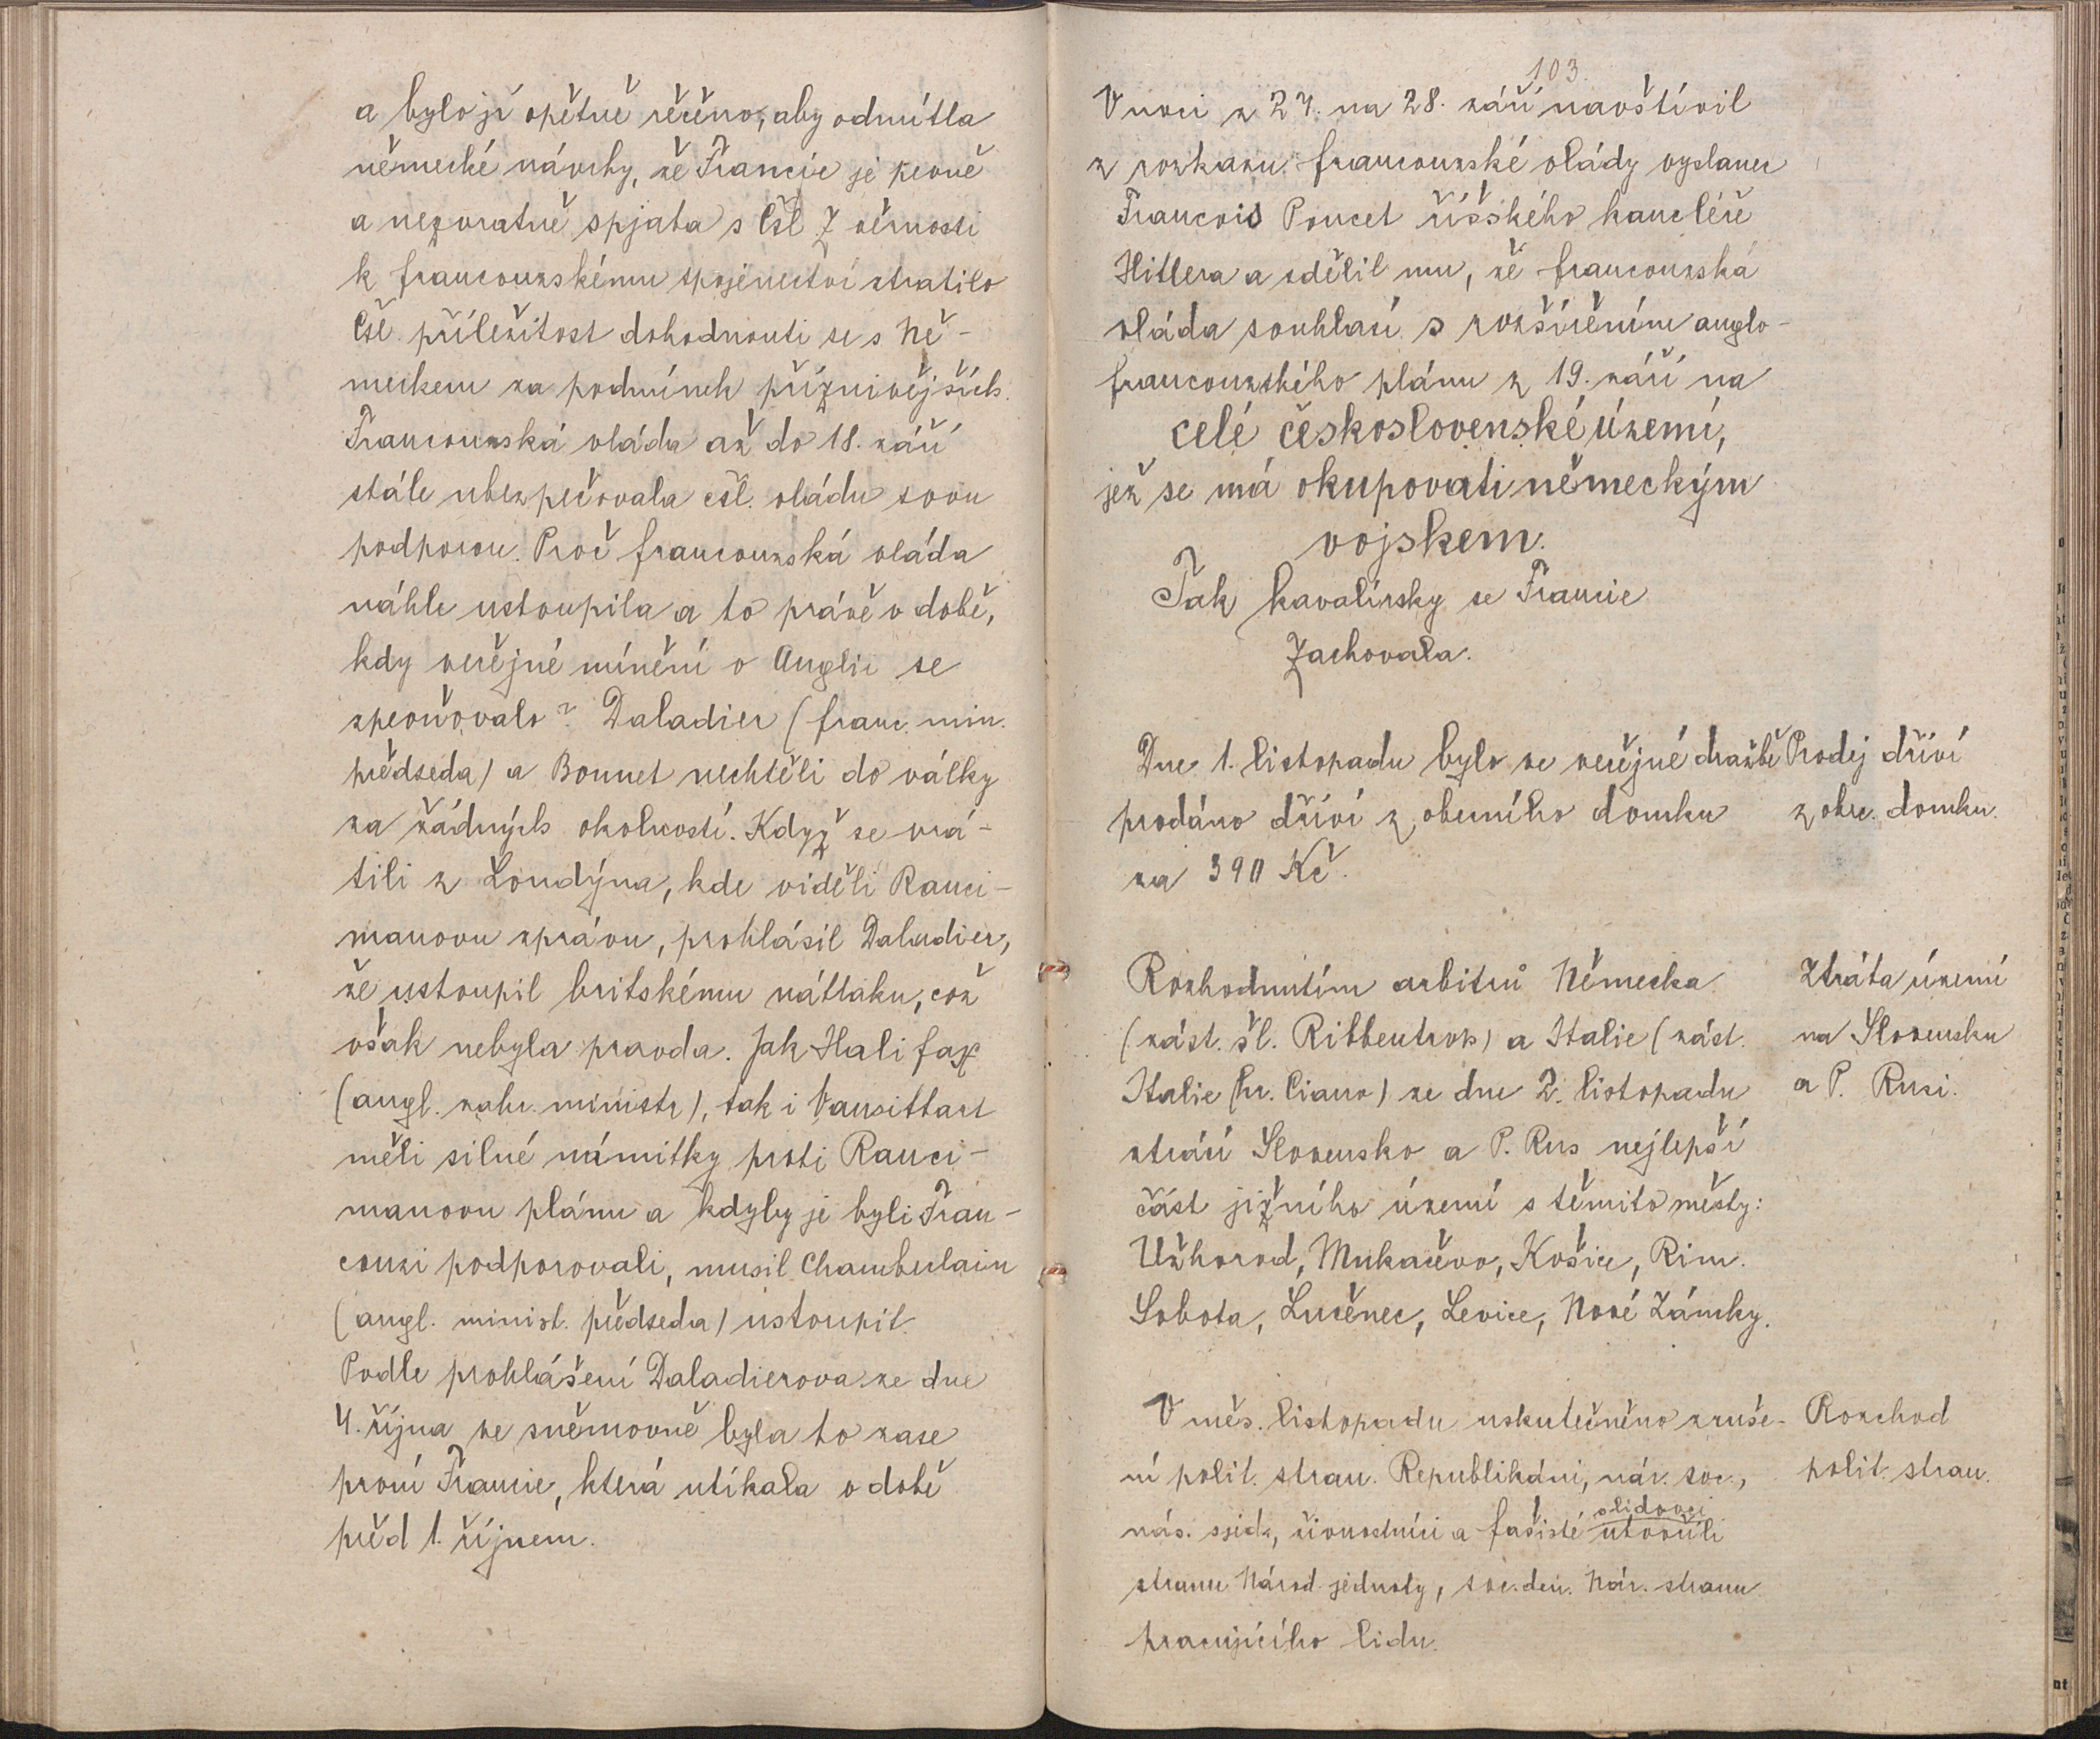 a bylo jí opětně řečeno, aby odmítla
německé návrhy, že Francie je pevně
a nezvratně spjata s Čsl. Z věrnosti
k francouzskému spojenectví ztratilo
Čsl. příležitost dohodnouti se s Ně-
meckem za podmínek příznivějších.
Francouzská vláda až do 18. září
stále ubezpečovala čsl. vládu svou
podporou. Proč francouzská vláda
náhle ustoupila a to právě v době,
kdy veřejné mínění v Anglii se
zpevňovalo? Daladier (franc. min.
předseda) a Bonnet nechtěli do války
za žádných okolností. Když se vrá-
tili z Londýna, kde viděli Ranci-
manovu zprávu, prohlásil Daladier,
že ustoupil britskému nátlaku, což
však nebyla pravda. Jak Halifax
(angl. zahr. ministr), tak i Vansittart
měli silné námitky proti Ranci-
manovu plánu a kdyby je byli Fran-
couzi podporovali, musil Chamberlain
(angl. minist. předseda) ustoupit.
Podle prohlášení Daladierova ze dne
4. října ve sněmovně byla to zase
první Francie, která utíkala v době
před 1. říjnem.
103.
V noci z 27. na 28. září navštívil
z rozkazu francouzské vlády vyslanec
Francois Poncet říšského kancléře
Hitlera a sdělil mu, že francouzská
vláda souhlasí s rozšířením anglo-
francouzského plánu z 19. září na
celé československé území,
jež se má okupovati německým
vojskem.
Tak kavalírsky se Francie
zachovala.
Dne 1. listopadu bylo ve veřejné dražbě
prodáno dříví z obecního domku
za 390 Kč.
Prodej dříví
z obec. domku.
Rozhodnutím arbitrů Německa
(zást. šl. Ribbentrop) a Italie (zást.
Italie hr. Ciano) ze dne 2. listopadu
ztrácí Slovensko a P. Rus nejlepší
část jižního území s těmito městy:
Užhorod, Mukačevo, Košice, Rim.
Sobota, Lučenec, Levice, Nové Zámky.
Ztráta území
na Slovensku
a P. Rusi.
V měs. listopadu uskutečněno zruše-
ní polit. stran. Republikáni, nár. soc.,
nár. sjed., živnostníci a fašisté a lidovci utvořili
stranu Národ. jednoty, soc. dem. Nár. stranu
pracujícího lidu.
Rozchod
polit. stran.